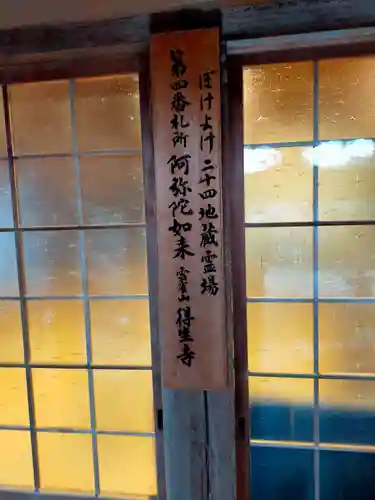 ぼけよけ二十四地蔵霊場
第四番札所 阿弥陀如来 雲雀山 得生寺